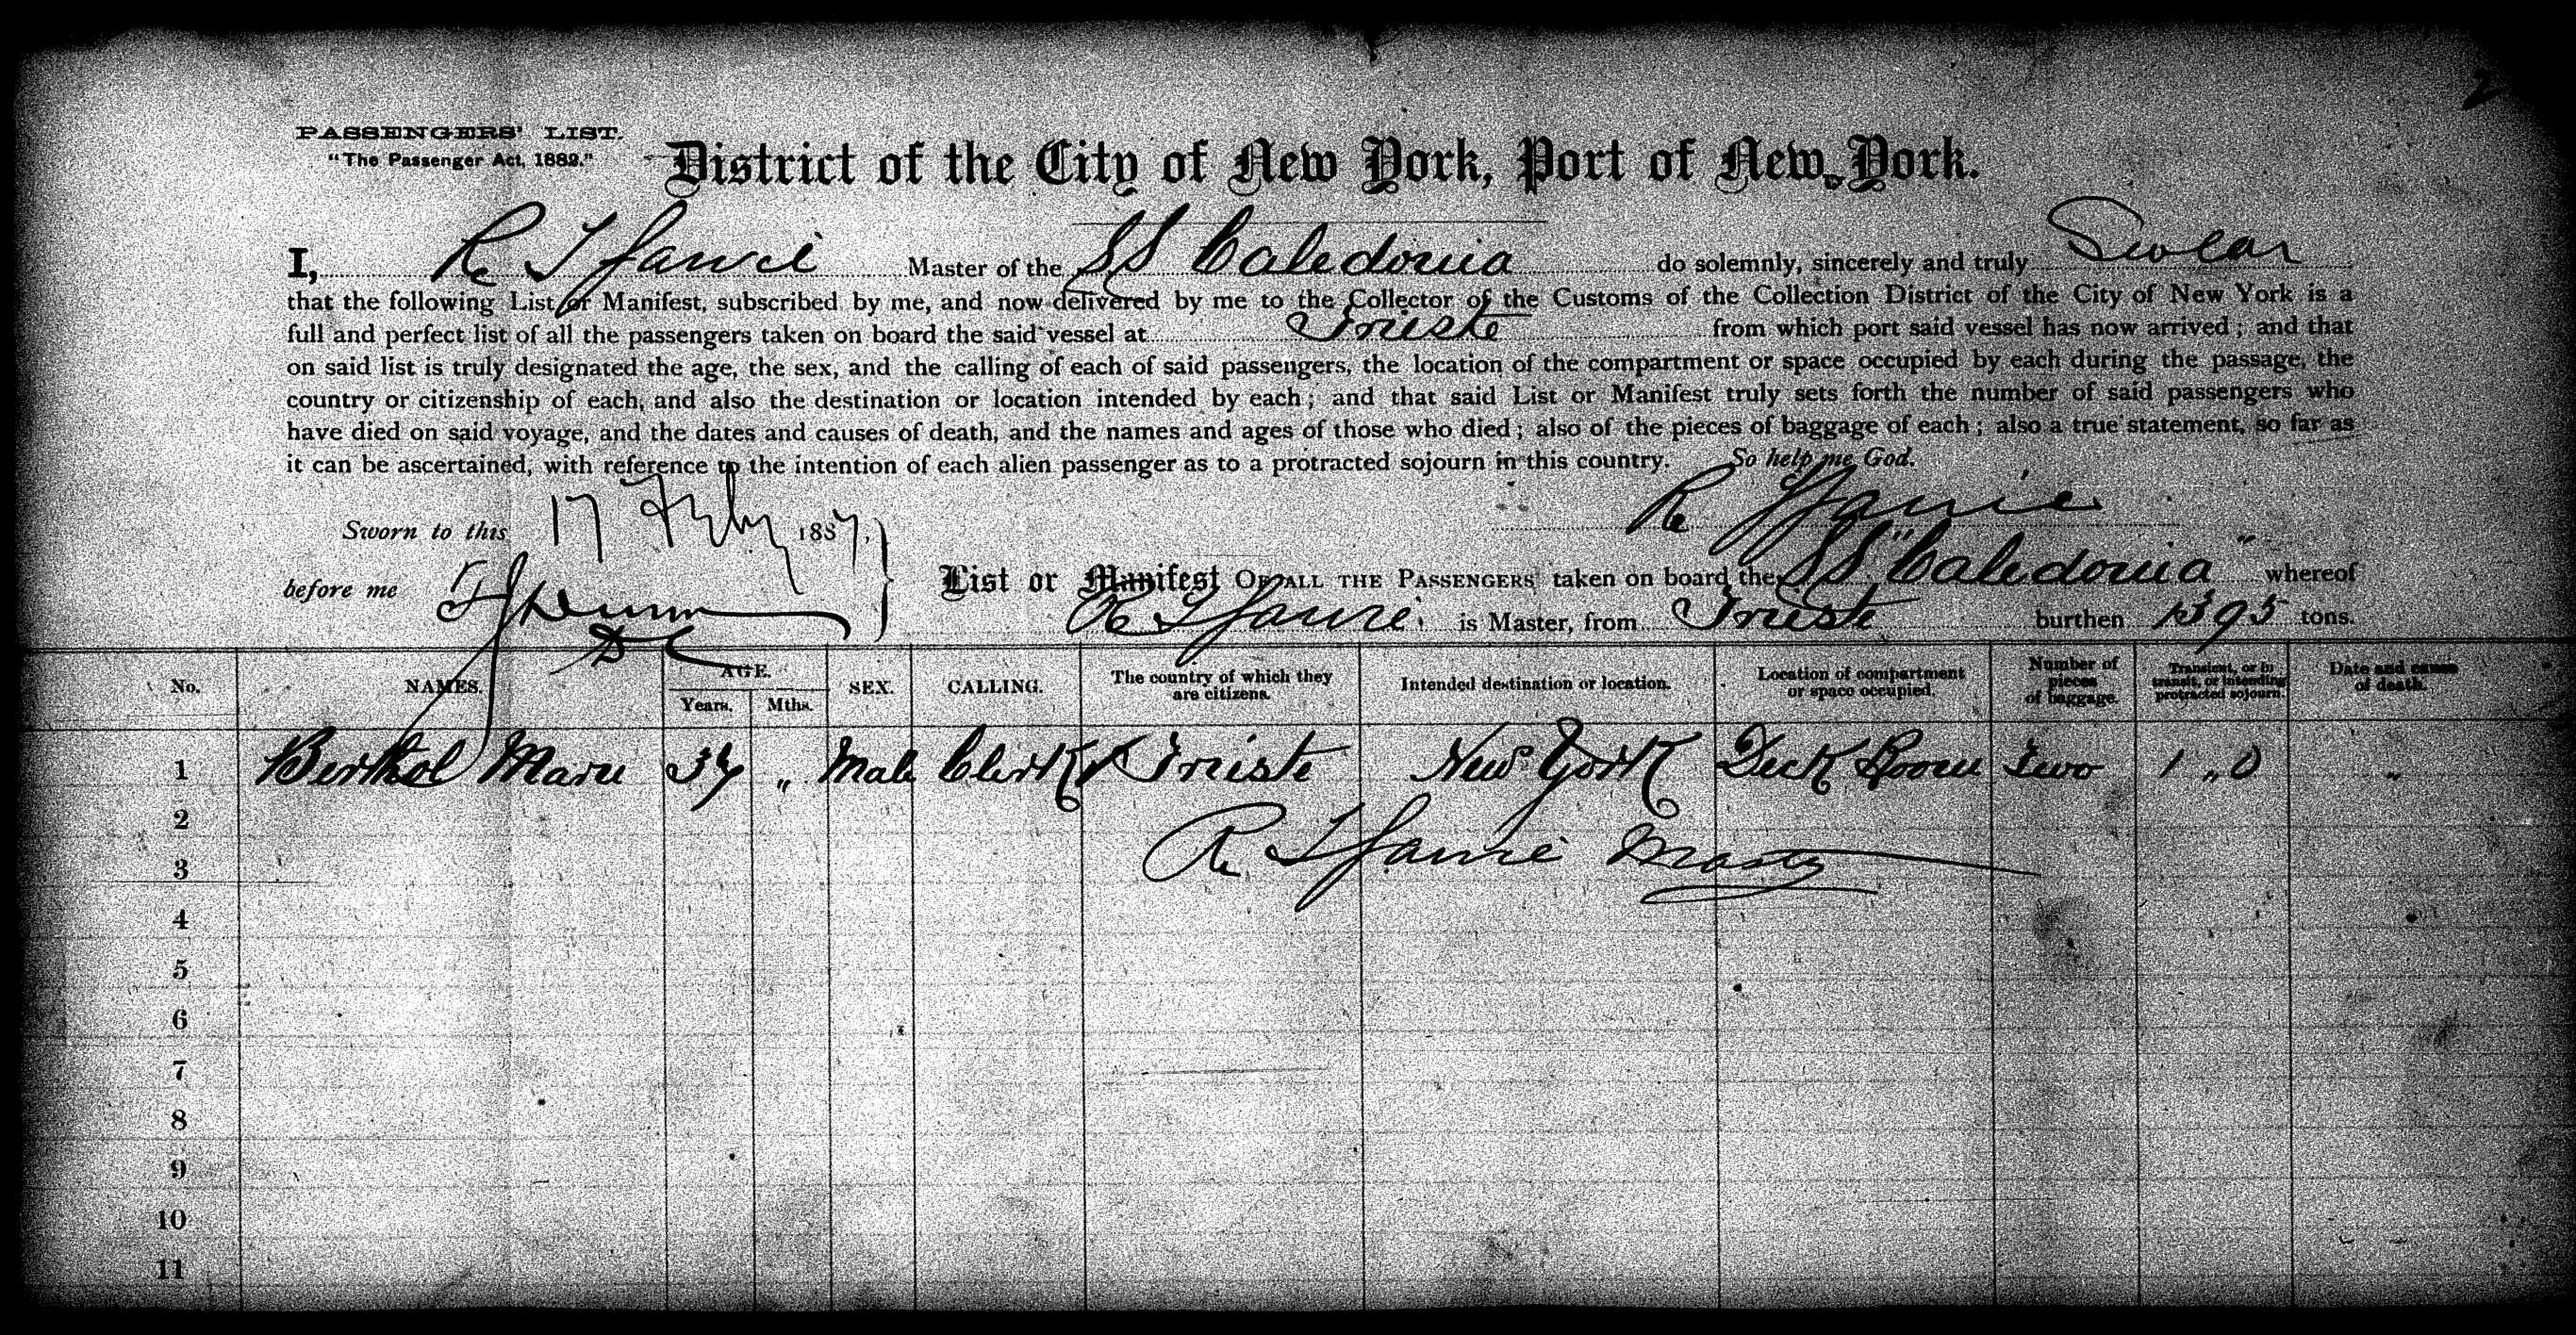 2
PASSENGERS' LIST.
"The Passenger Act, 1882."
District of the City of New York, Port of New York.
I, R Master of the SS Caledonia do solemnly, sincerely and truly Swear
that the following List or Manifest, subscribed by me, and now delivered by me to the Collector of the Customs of the Collection District of the City of New York is a
full and perfect list of all the passengers taken on board the said vessel at Trieste from which port said vessel has now arrived; and that
on said list is truly designated the age, the sex, and the calling of each of said passengers, the location of the compartment or space occupied by each during the passage, the
country or citizenship of each, and also the destination or location intended by each; and that said List or Manifest truly sets forth the number of said passengers who
have died on said voyage, and the dates and causes of death, and the names and ages of those who died; also of the pieces of baggage of each; also a true statement, so far as
it can be ascertained, with reference to the intention of each alien passenger as to a protracted sojourn in this country. So help me God.
R
Sworn to this 17 1887,
before me
List or Manifest OF ALL THE PASSENGERS taken on board the SS "Caledonia" whereof
R is Master, from Trieste burthen 1395 tons.
No. NAMES. AGE. Years. Mths. SEX. CALLING. The country of which they are citizens. Intended destination or location. Location of compartment or space occupied. Number of pieces of baggage. Transient, or in transit, or intending protracted sojourn. Date and cause of death.
1 Berthol 34 " Male Clerk Trieste New York Deck Room Two 1 " 0 "
2
R Master
3
4
5
6
7
8
9
10
11